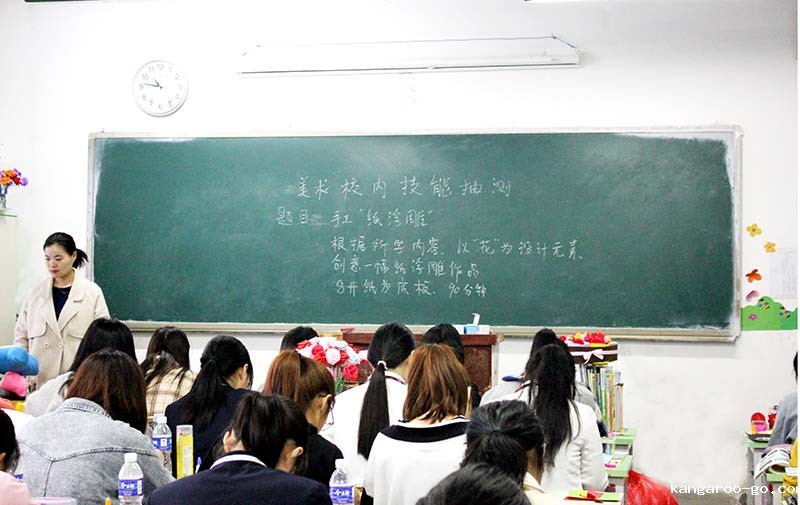 美术校内技能抽测
题目: 手工"纸浮雕"
根据所学内容, 以"花"为设计元素,
创意一幅纸浮雕作品
8开纸为底板, 90分钟
kangaroo-go.com